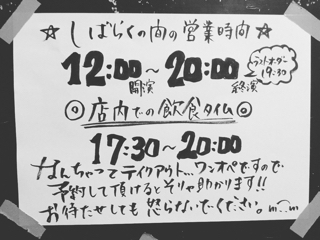 ☆しばらくの間の営業時間☆
12:00~20:00
開演
終演
ラストオーダー
19:30
◎店内での飲食タイム◎
17:30~20:00
なんちゃってテイクアウト…ワンオペですので
予約して頂けるとそりゃ助かります!!
お待たせしても怒らないでください。m(_ _)m